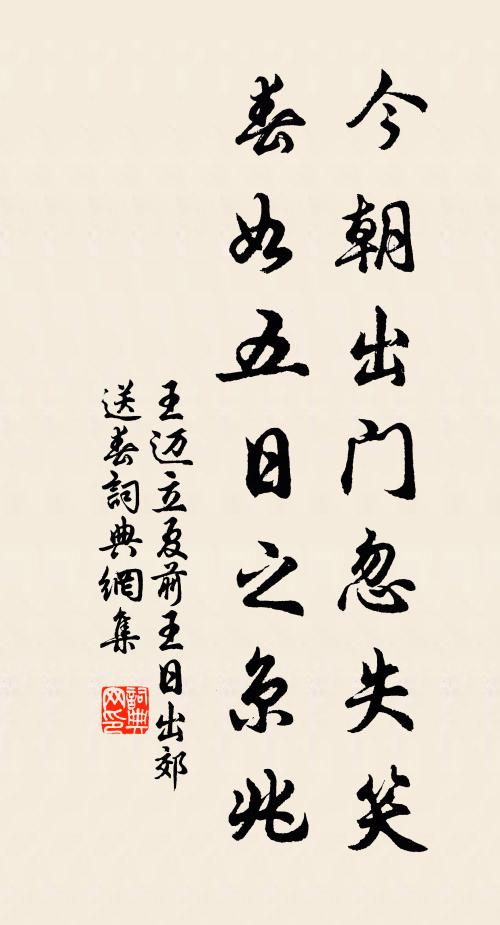 今朝出门忽失笑
春如五日之京兆
王迈立夏前王日出郊
送春詞典網集
詞典网印